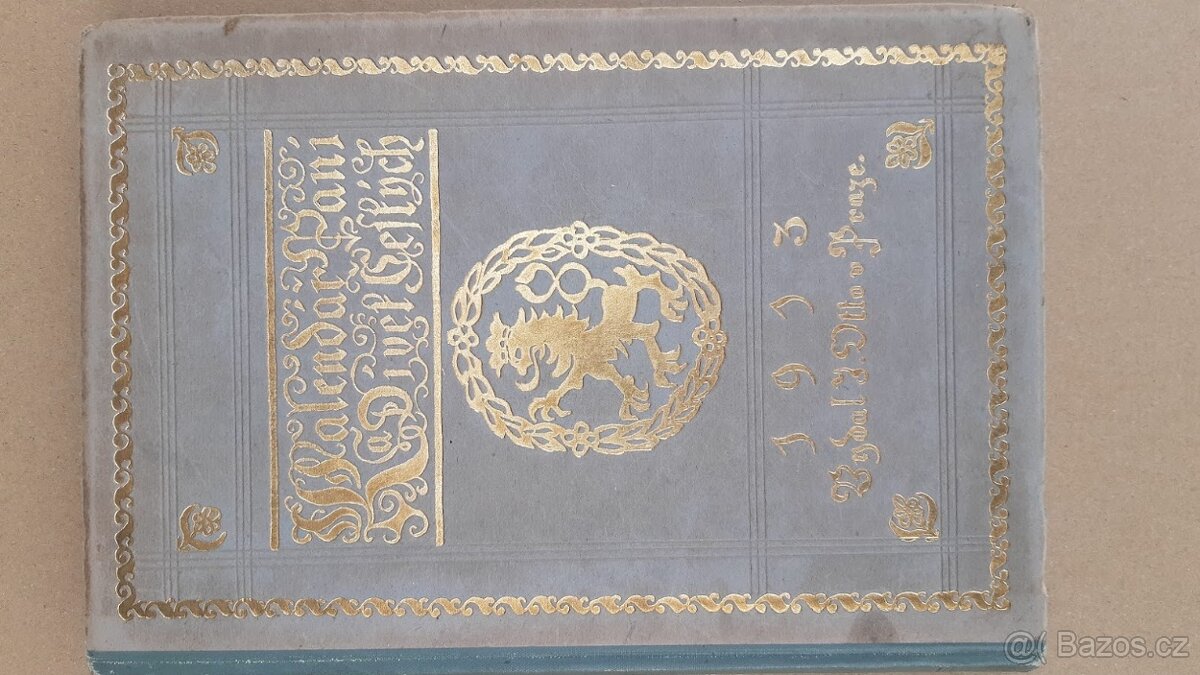 Kalendář Paní
a Dívek Českých
1913
Vydal J. Otto v Praze.
@ Bazos.cz